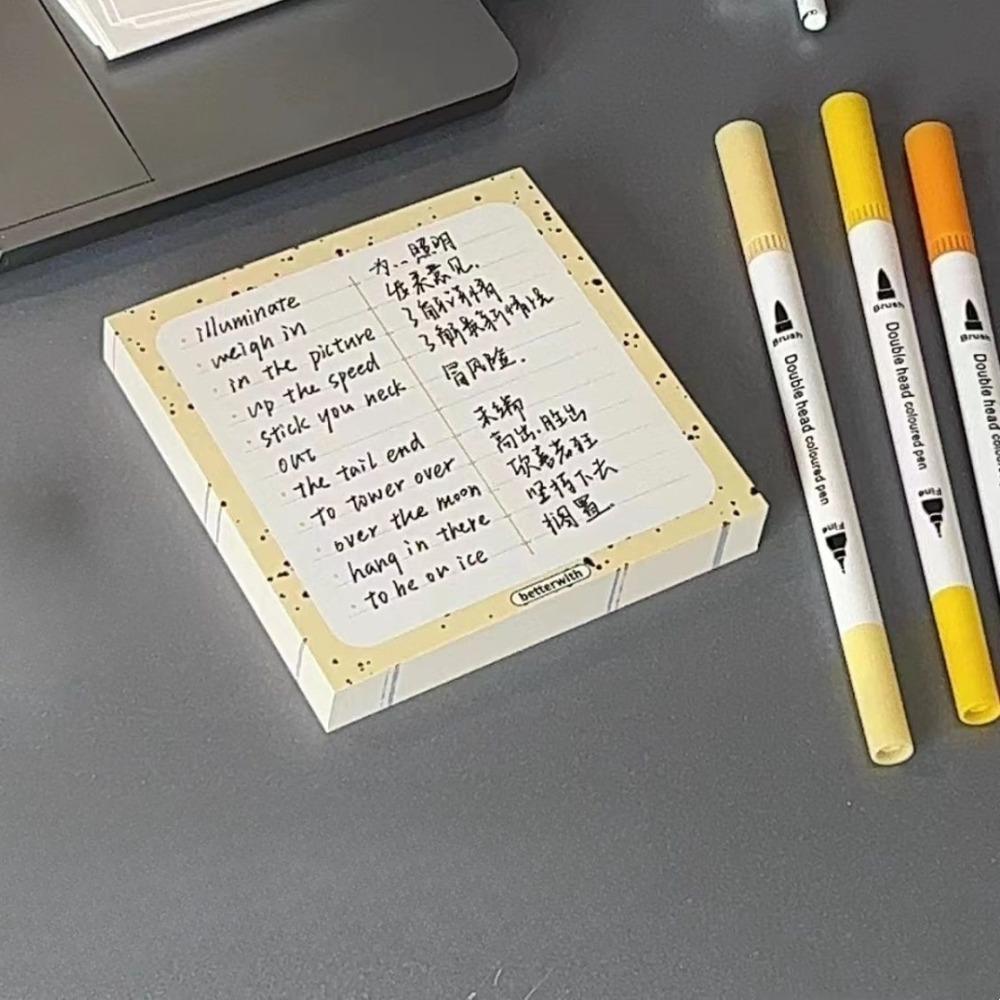 illuminate
weigh in
in the picture
up the speed
stick you neck
out
the tail end
to tower over
over the moon
hang in there
to be on ice
为...照明
发表意见.
了解详情
了解最新情况
冒风险.
末端
高出.胜出
欣喜若狂
坚持下去
搁置.
betterwith
Brush
Double head coloured pen
Fine
Brush
Double head coloured pen
Fine
Brush
Double head coloured